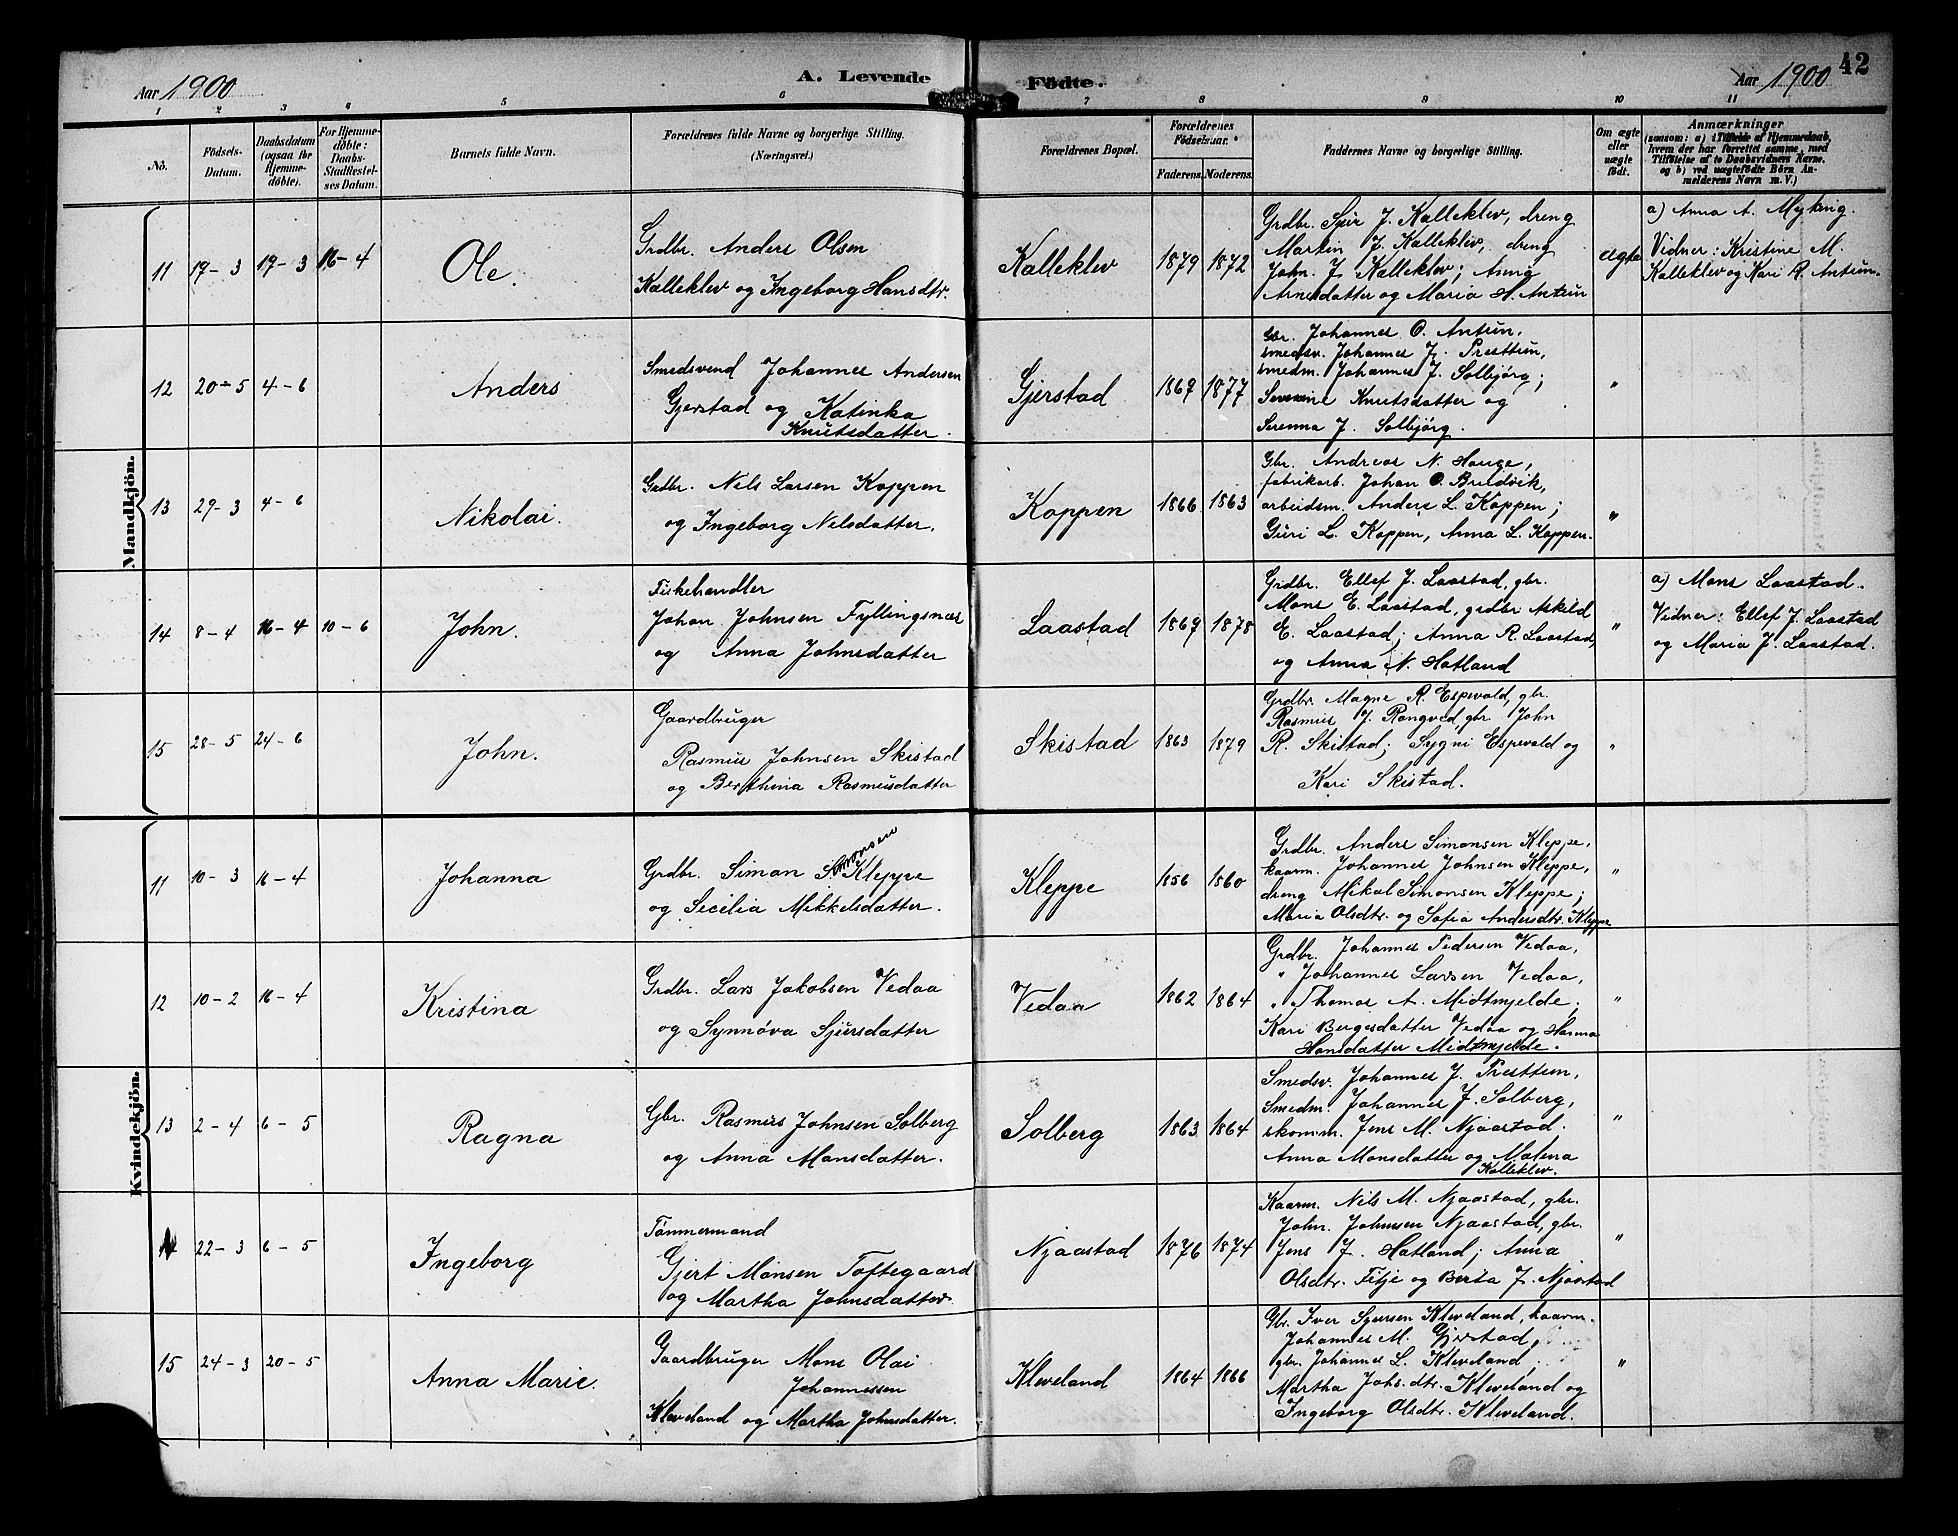 42
Aar 1900
A. Levende Födte.
Aar 1900
1 2 3 4 5 6 7 8 9 10 11
No.
Födsels-
Datum.
Daabsdatum
(ogsaa for
Hjemme-
døbte).
For Hjemme-
døbte:
Daabs-
Stadfæstel-
ses Datum.
Barnets fulde Navn.
Forældrenes fulde Navne og borgerlige Stilling.
(Næringsvei.)
Forældrenes Bopæl.
Forældrenes
Födselsaar.
Faderens. Moderens.
Faddernes Navne og borgerlige Stilling.
Om ægte
eller
uægte
födt.
Anmærkninger
(saasom: a) i Tilfælde af Hjemmedaab,
hvem der har forrettet samme, med
Tilföielse af to Daabsvidners Navne,
og b) ved uægtefödte Börn An-
melderens Navn m. V.)
Mandkjön.
11
19-3
19-3
16-4
Ole.
Grdbr. Anders Olsen
Kalleklev og Ingeborg Hansdtr.
Kalleklev
1879
1872
Grdbr. Sjur J. Kalleklev, dreng
Martin J. Kalleklev, dreng
John. J. Kalleklev; Anna
Arnesdatter og Maria H. Antun
ægte
a) Anna A. Myking.
Vidner: Kristine M.
Kalleklev og Kari R. Antun.
12
20-5
4-6
Anders
Smedsvend Johannes Andersen
Gjerstad og Katinka
Knutsdatter.
Gjerstad
1869
1877
Gbr. Johannes O. Antun,
smedsv. Johannes J. Presttun,
smedm. Johannes J. Solbjørg;
Severine Knutsdatter og
Serenna J. Solbjørg.
"
13
29-3
4-6
Nikolai.
Grdbr. Nils Larsen Koppen
og Ingeborg Nilsdatter.
Koppen
1866
1863
Gbr. Andreas N. Hauge,
fabrikarb. Johan O. Bredvik,
arbeidsm. Anders L. Koppen;
Guri L. Koppen, Anna L. Koppen.
"
14
8-4
16-4
10-6
John.
Fiskehandler
Johan Johnsen Fyllingsnæs
og Anna Johnsdatter
Laastad
1869
1878
Grdbr. Ellef J. Laastad, gbr.
Mons E. Laastad, grdbr Askild
E. Laastad; Anna R. Laastad,
og Anna N. Hatland
"
a) Mons Laastad.
Vidner: Ellef J. Laastad
og Maria J. Laastad.
15
28-5
24-6
John.
Gaardbruger
Rasmus Johnsen Skistad
og Berthina Rasmusdatter
Skistad
1863
1879
Grdbr. Magne R. Espevold, gbr.
Rasmus J. Rongved, gbr. John
R. Skistad; Sygni Espevold og
Kari Skistad.
"
Kvindekjön.
11
10-3
16-4
Johanna
Grdbr. Simon Simonsen Kleppe
og Secilia Mikkelsdatter.
Kleppe
1856
1860
Grdbr. Anders Simonsen Kleppe,
kaarm. Johannes Johnsen Kleppe,
dreng Mikal Simonsen Kleppe;
Maria Olsdtr. og Sofia Andersdtr. Kleppe
"
12
10-2
16-4
Kristina
Grdbr. Lars Jakobsen Vedaa
og Synnøva Sjursdatter
Vedaa
1862
1864
Grdbr. Johannes Pedersen Vedaa,
" Johannes Larsen Vedaa,
" Thomas A. Midtmjelde;
Kari Bergesdatter Vedaa og Hanna
Hansdatter Midtmjelde.
"
13
2-4
6-5
Ragna
Gbr. Rasmus Johnsen Solberg
og Anna Monsdatter.
Solberg
1863
1864
Smedsv. Johannes J. Presttun,
Smedm. Johannes J. Solberg,
skomm. Jens M. Njaastad.
Anna Monsdatter og Malena
Kalleklev.
"
14
22-3
6-5
Ingeborg
Tömmermand
Gjert Monsen Toftegaard
og Martha Johnsdatter.
Njaastad
1876
1874
Kaarm. Nils M. Njaastad, gbr.
John. Johnsen Njaastad, gbr.
Jens J. Hatland; Anna
Olsdtr. Fitje og Berta J. Njaastad
"
15
24-3
20-5
Anna Marie.
Gaardbruger Mons Olai
Johannessen
Kleveland og Martha Johnsdatter.
Kleveland
1864
1866
Gbr. Iver Sjursen Kleveland, kaarm.
Johannes M. Gjerstad,
gbr. Johannes L. Kleveland;
Martha Johs.dtr. Kleveland og
Ingeborg Olsdtr. Kleveland.
"